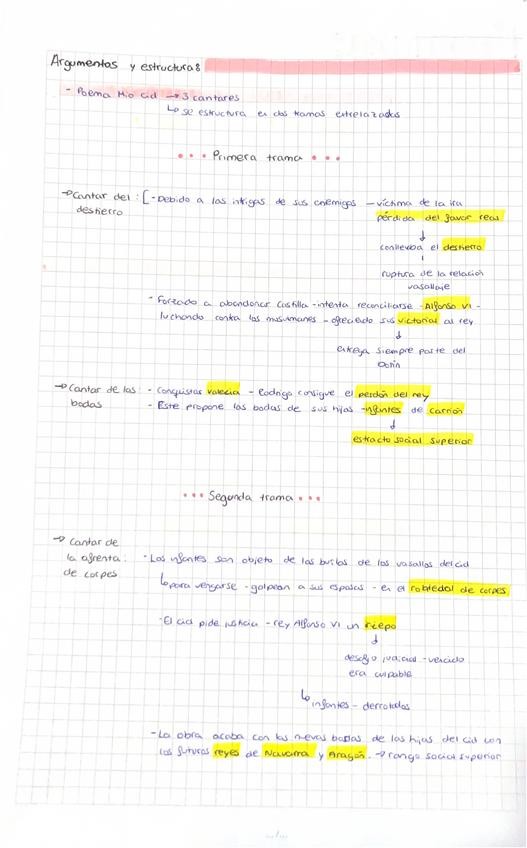 Argumentos y estructura:
- Poema Mio Cid → 3 cantares
↳ se estructura en dos tramas entrelazadas
••• Primera trama •••
→ Cantar del : [ - Debido a las intrigas de sus enemigos - víctima de la ira
destierro
pérdida del favor real
↓
conllevaba el destierro
ruptura de la relación
vasallaje
- Forzado a abandonar Castilla - intenta reconciliarse - Alfonso VI -
luchando contra los musulmanes - ofreciendo sus victorias al rey
↓
entrega siempre parte del
botín
→ Cantar de las : - Conquistas Valencia - Rodrigo consigue el perdón del rey
bodas
- Este propone las bodas de sus hijas - infantes de carrión
↓
estracto social superior
••• Segunda trama •••
→ Cantar de
la afrenta :
de corpes
- Los infantes son objeto de las burlas de los vasallos del cid
↳ para vengarse - golpean a sus esposas - en el robledal de corpes
- El cid pide justicia - rey Alfonso VI un riepo
↓
desafío judicial - vencido
era culpable
↳ infantes - derrotados
- La obra acaba con las nuevas bodas de las hijas del cid con
los futuros reyes de Navarra y Aragón. → rango social superior